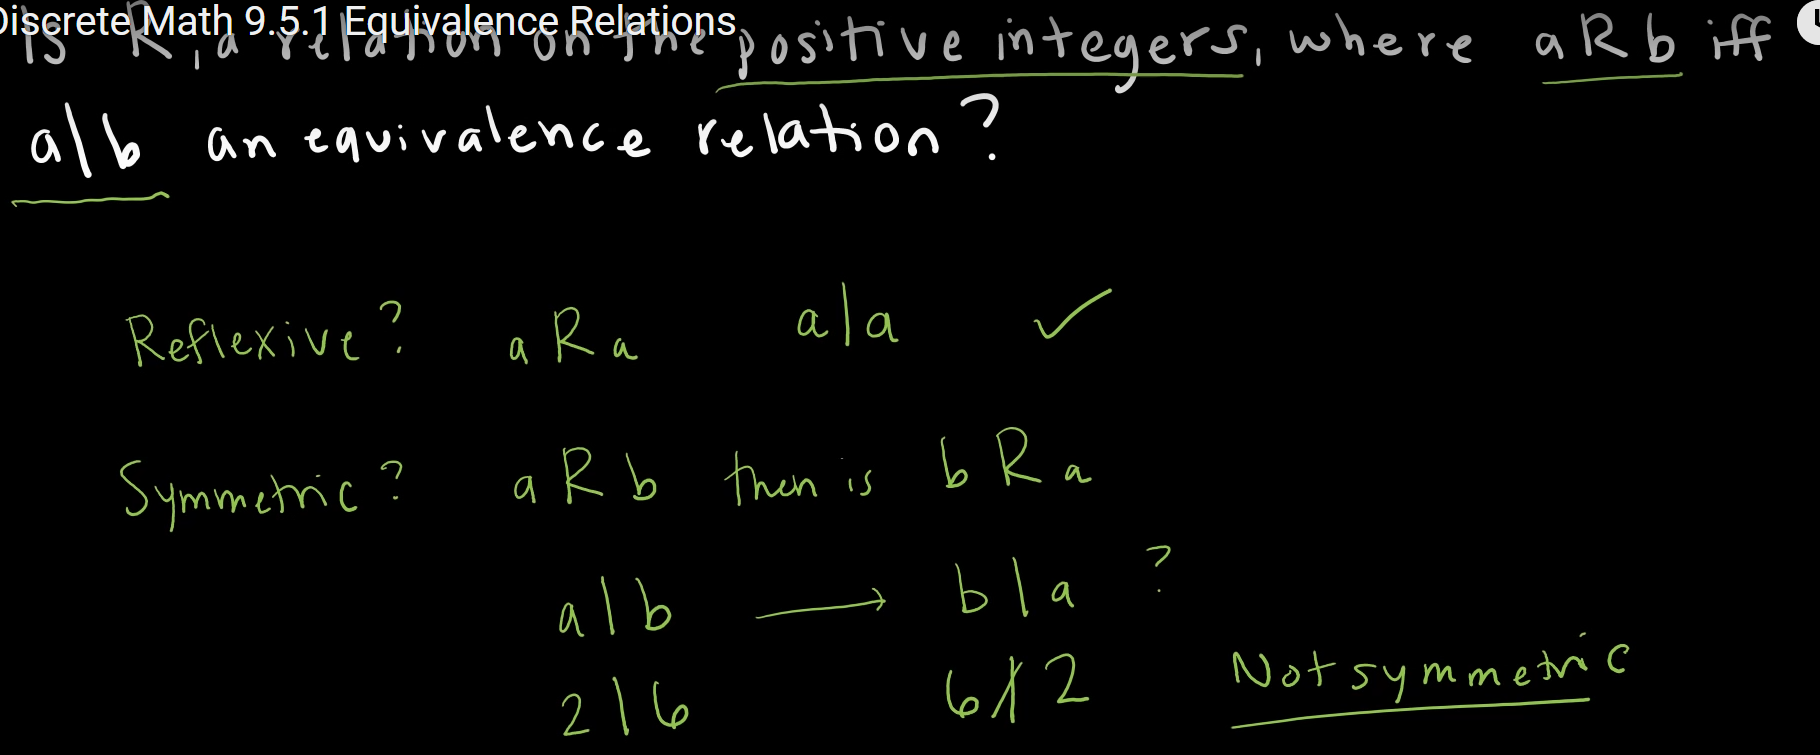 Discrete Math 9.5.1 Equivalence Relations
Is R, a relation on the positive integers, where aRb iff
a|b an equivalence relation?
Reflexive? aRa a|a ✓
Symmetric? aRb then is bRa
a|b → b|a ?
2|6 6∤2 Not symmetric